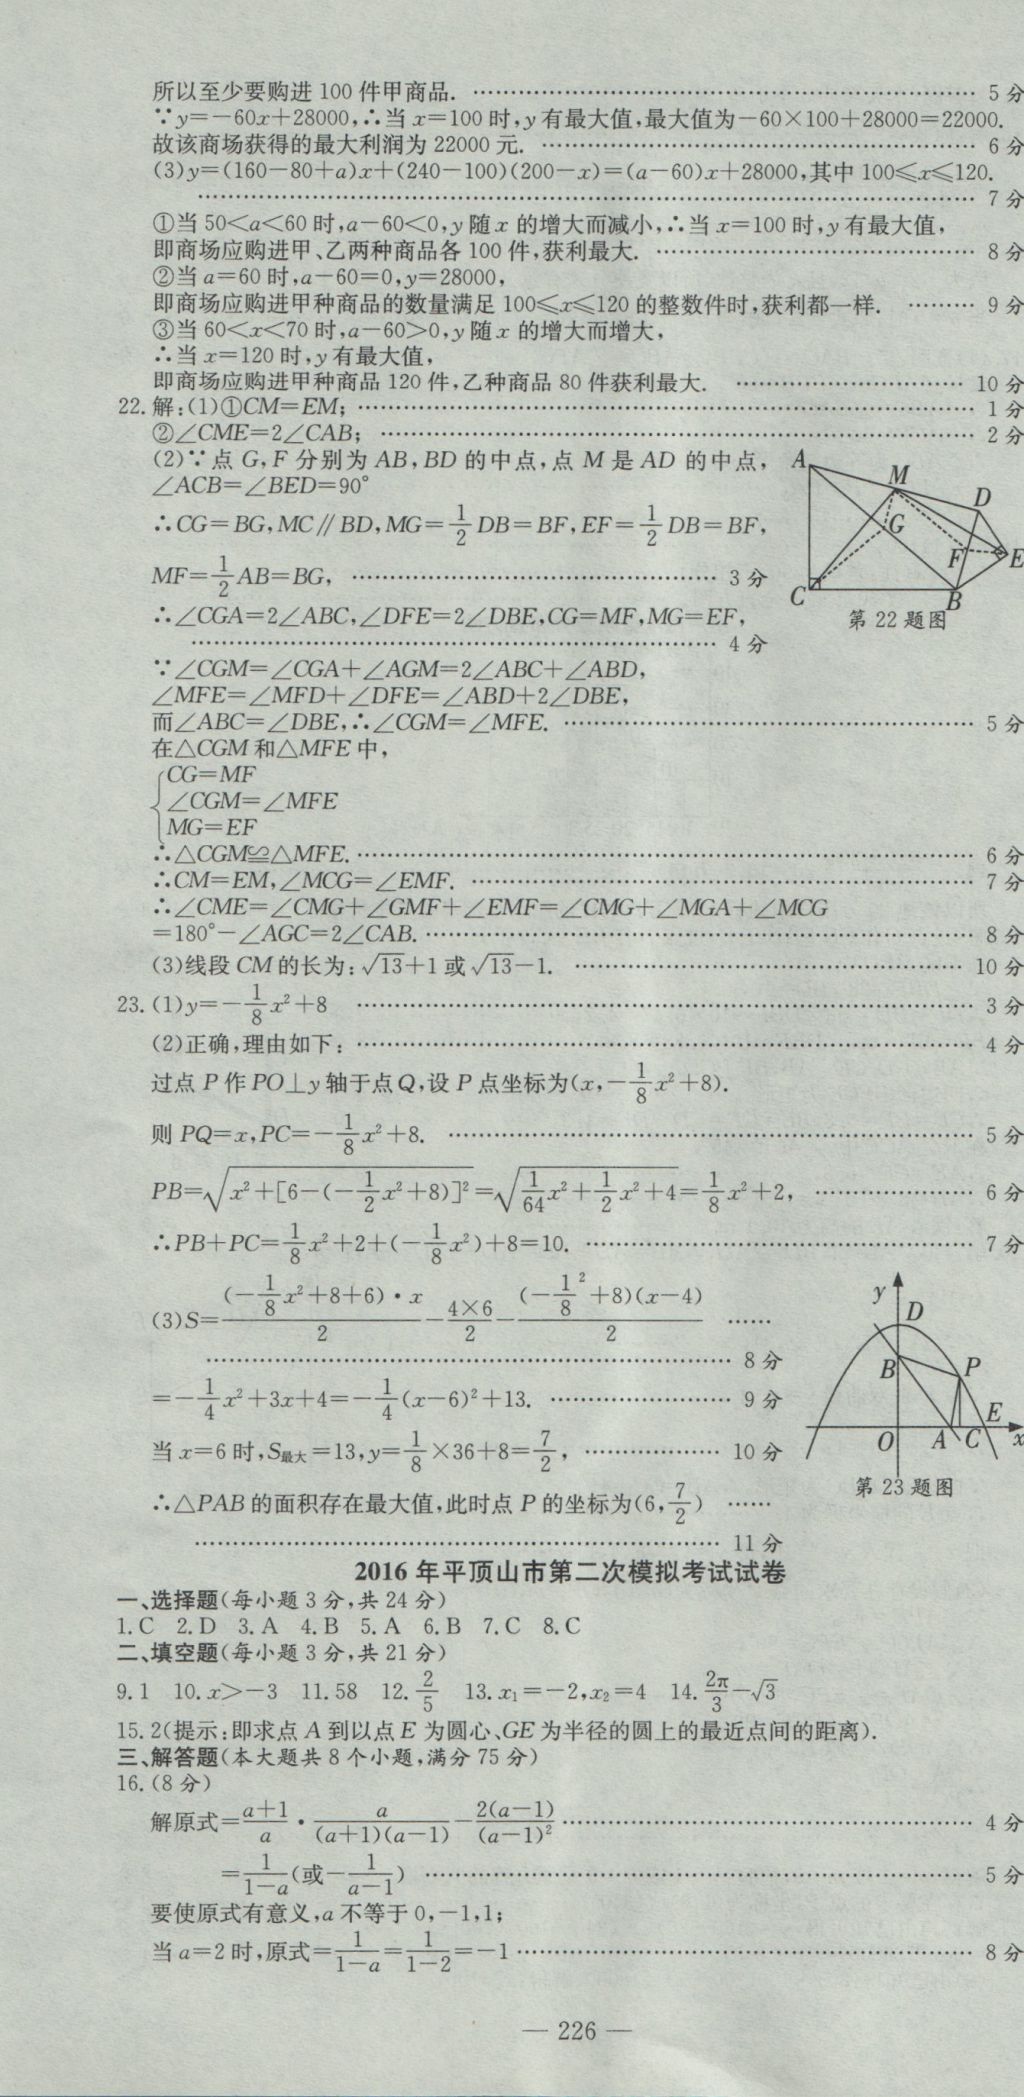 所以至少要购进 100 件甲商品. …… 5 分
∵y=-60x+28000,∴当 x=100 时,y 有最大值,最大值为-60×100+28000=22000.
故该商场获得的最大利润为 22000 元. …… 6 分
(3)y=(160-80+a)x+(240-100)(200-x)=(a-60)x+28000,其中 100≤x≤120.
…… 7 分
①当 50<a<60 时,a-60<0,y 随 x 的增大而减小,∴当 x=100 时,y 有最大值,
即商场应购进甲、乙两种商品各 100 件,获利最大. …… 8 分
②当 a=60 时,a-60=0,y=28000,
即商场应购进甲种商品的数量满足 100≤x≤120 的整数件时,获利都一样. …… 9 分
③当 60<x<70 时,a-60>0,y 随 x 的增大而增大,
∴当 x=120 时,y 有最大值,
即商场应购进甲种商品 120 件,乙种商品 80 件获利最大. …… 10 分
22. 解:(1)①CM=EM; …… 1 分
②∠CME=2∠CAB; …… 2 分
(2)∵点 G,F 分别为 AB,BD 的中点,点 M 是 AD 的中点,
∠ACB=∠BED=90°
∴CG=BG,MC∥BD,MG=\frac{1}{2}DB=BF,EF=\frac{1}{2}DB=BF,
MF=\frac{1}{2}AB=BG, …… 3 分
∴∠CGA=2∠ABC,∠DFE=2∠DBE,CG=MF,MG=EF,
…… 4 分
A M D G F E C B
第 22 题图
∵∠CGM=∠CGA+∠AGM=2∠ABC+∠ABD,
∠MFE=∠MFD+∠DFE=∠ABD+2∠DBE,
而∠ABC=∠DBE,∴∠CGM=∠MFE. …… 5 分
在△CGM 和△MFE 中,
CG=MF
∠CGM=∠MFE
MG=EF
∴△CGM≌△MFE. …… 6 分
∴CM=EM,∠MCG=∠EMF. …… 7 分
∴∠CME=∠CMG+∠GMF+∠EMF=∠CMG+∠MGA+∠MCG
=180°-∠AGC=2∠CAB. …… 8 分
(3)线段 CM 的长为:√13+1 或 √13-1. …… 10 分
23. (1)y=-\frac{1}{8}x²+8 …… 3 分
(2)正确,理由如下: …… 4 分
过点 P 作 PO⊥y 轴于点 Q,设 P 点坐标为(x,-\frac{1}{8}x²+8).
则 PQ=x,PC=-\frac{1}{8}x²+8. …… 5 分
PB=\sqrt{x²+[6-(-\frac{1}{2}x²+8)]²}=\sqrt{\frac{1}{64}x²+\frac{1}{2}x²+4}=\frac{1}{8}x²+2, …… 6 分
∴PB+PC=\frac{1}{8}x²+2+(-\frac{1}{8}x²)+8=10. …… 7 分
(3)S=\frac{(-\frac{1}{8}x²+8+6)·x}{2}-\frac{4×6}{2}-\frac{(-\frac{1}{8}²+8)(x-4)}{2} ……
…… 8 分
=-\frac{1}{4}x²+3x+4=-\frac{1}{4}(x-6)²+13. …… 9 分
当 x=6 时,S最大=13,y=\frac{1}{8}×36+8=\frac{7}{2}, …… 10 分
∴△PAB 的面积存在最大值,此时点 P 的坐标为(6,\frac{7}{2}) ……
…… 11 分
y D B P E O A C x
第 23 题图
2016 年平顶山市第二次模拟考试试卷
一、选择题(每小题 3 分,共 24 分)
1. C 2. D 3. A 4. B 5. A 6. B 7. C 8. C
二、填空题(每小题 3 分,共 21 分)
9. 1 10. x>-3 11. 58 12. \frac{2}{5} 13. x₁=-2,x₂=4 14. \frac{2π}{3}-√3
15. 2(提示:即求点 A 到以点 E 为圆心、GE 为半径的圆上的最近点间的距离).
三、解答题(本大题共 8 个小题,满分 75 分)
16. (8 分)
解原式=\frac{a+1}{a}·\frac{a}{(a+1)(a-1)}-\frac{2(a-1)}{(a-1)²} …… 4 分
=\frac{1}{1-a}(或-\frac{1}{a-1}) …… 5 分
要使原式有意义,a 不等于 0,-1,1;
当 a=2 时,原式=\frac{1}{1-a}=\frac{1}{1-2}=-1 …… 8 分
— 226 —